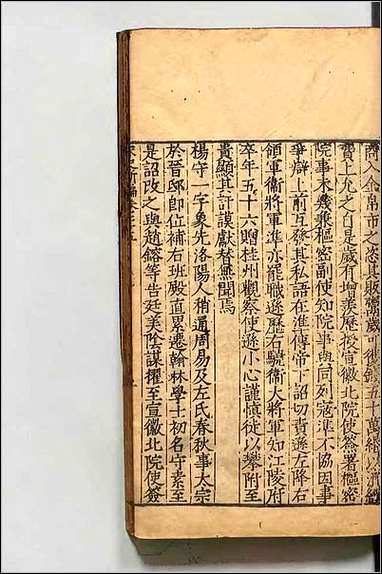 商人金帛市之恣其販鬻歲可獲錢五十萬緡以濟經
費上允之自是歲有增羨歷授宣徽北院使簽署樞密
院事未幾兼樞密副使知院事與同列寇準不協因事
爭辯上前互發其私語在準傳帝下詔切責遜左降右
領軍衛將軍準亦罷職遜歷右驍衛大將軍知江陵府
卒年五十六贈桂州觀察使遜小心謹慎徒以攀附至
貴顯其訏謨獻替無聞焉
楊守一字象先洛陽人稍通周易及左氏春秋事太宗
於晉邸即位補右班殿直累遷翰林學士初名守素至
是詔改之與趙鎔等告廷美陰謀擢至宣徽北院使簽